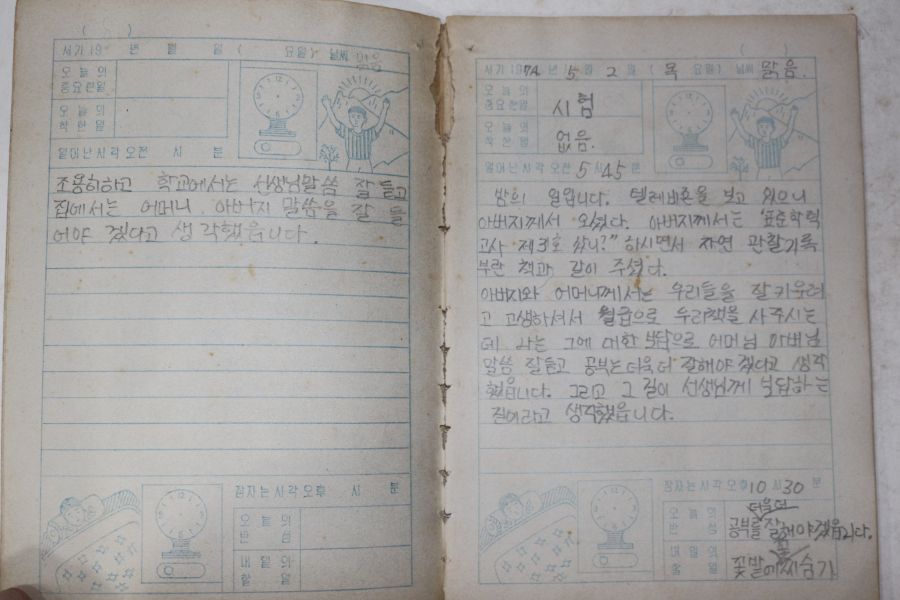 서기 19 년 월 일 ( 요일) 날씨 맑음
오늘의
중요한일
오늘의
착한일
일어난시각 오전 시 분
조용히하고 학교에서는 선생님말씀 잘 듣고
집에서는 어머니 아버지 말씀을 잘 들
어야 겠다고 생각했읍니다.
잠자는시각 오후 시 분
오늘의
반성
내일의
할일
서기 1974년 5월 2일 (목 요일) 날씨 맑음.
오늘의
중요한일
시험
오늘의
착한일
없음.
일어난시각 오전 5시 45분
밤의 일입니다. 텔레비죤을 보고 있으니
아버지께서 오셨다. 아버지께서는 "표준학력
고사 제3호 샀니?" 하시면서 자연 관찰기록
부란 책과 같이 주셨다.
아버지와 어머니께서는 우리들을 잘 키우려
고 고생하셔서 월급으로 우리책을 사주시는
데 나는 그에 대한 보답으로 어머님 아버님
말씀 잘듣고 공부는 더욱 더 잘해야 겠다고 생각
했읍니다. 그리고 그 길이 선생님께 보답하는
길이라고 생각했읍니다.
잠자는시각 오후 10시 30분
오늘의
반성
더욱더
공부를 잘해야겠읍니다.
내일의
할일
꽃밭에 씨 심기